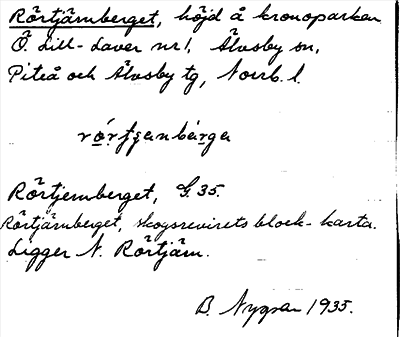 Rörtjärnberget, höjd å kronoparken
Ö. Lill-Laver nr 1, Älvsby sn,
Piteå och Älvsby tg, Norrb. l.
rórtʃɛnbärga
Rörtjernberget, G. 35.
Rörtjärnberget, skogsrevirets block-karta.
Ligger N. Rörtjärn.
B. Nygren 1935.